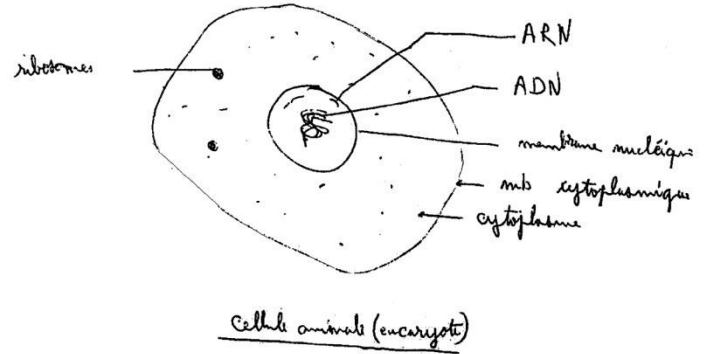 ARN
ribosomes
ADN
membrane nucléiqu
mb cytoplasmique
cytoplasme
Cellule animale (eucaryote)